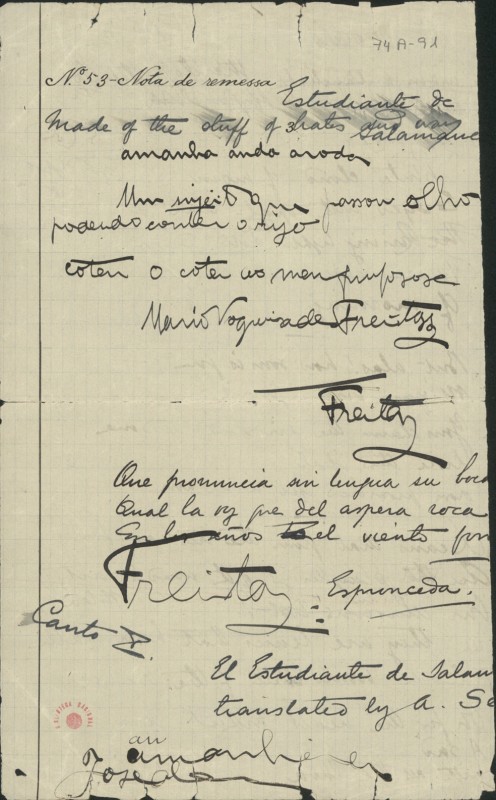 74A-91
Nº 53-Nota de remessa
Estudiante de
Made of the stuff of
Salamanc
amanha anda a roda
Um sujeito que passou olho
podendo conter o rijo
coten o coten ao meu
Mario Nogueira de Freitas
Freitas
Que pronuncia sin lengua su boca
Qual la voz que del aspera roca
En los años el viento for
Freitas
Espronceda.
Canto
El Estudiante de Salam
translated by A. Se
an
amanhe
José